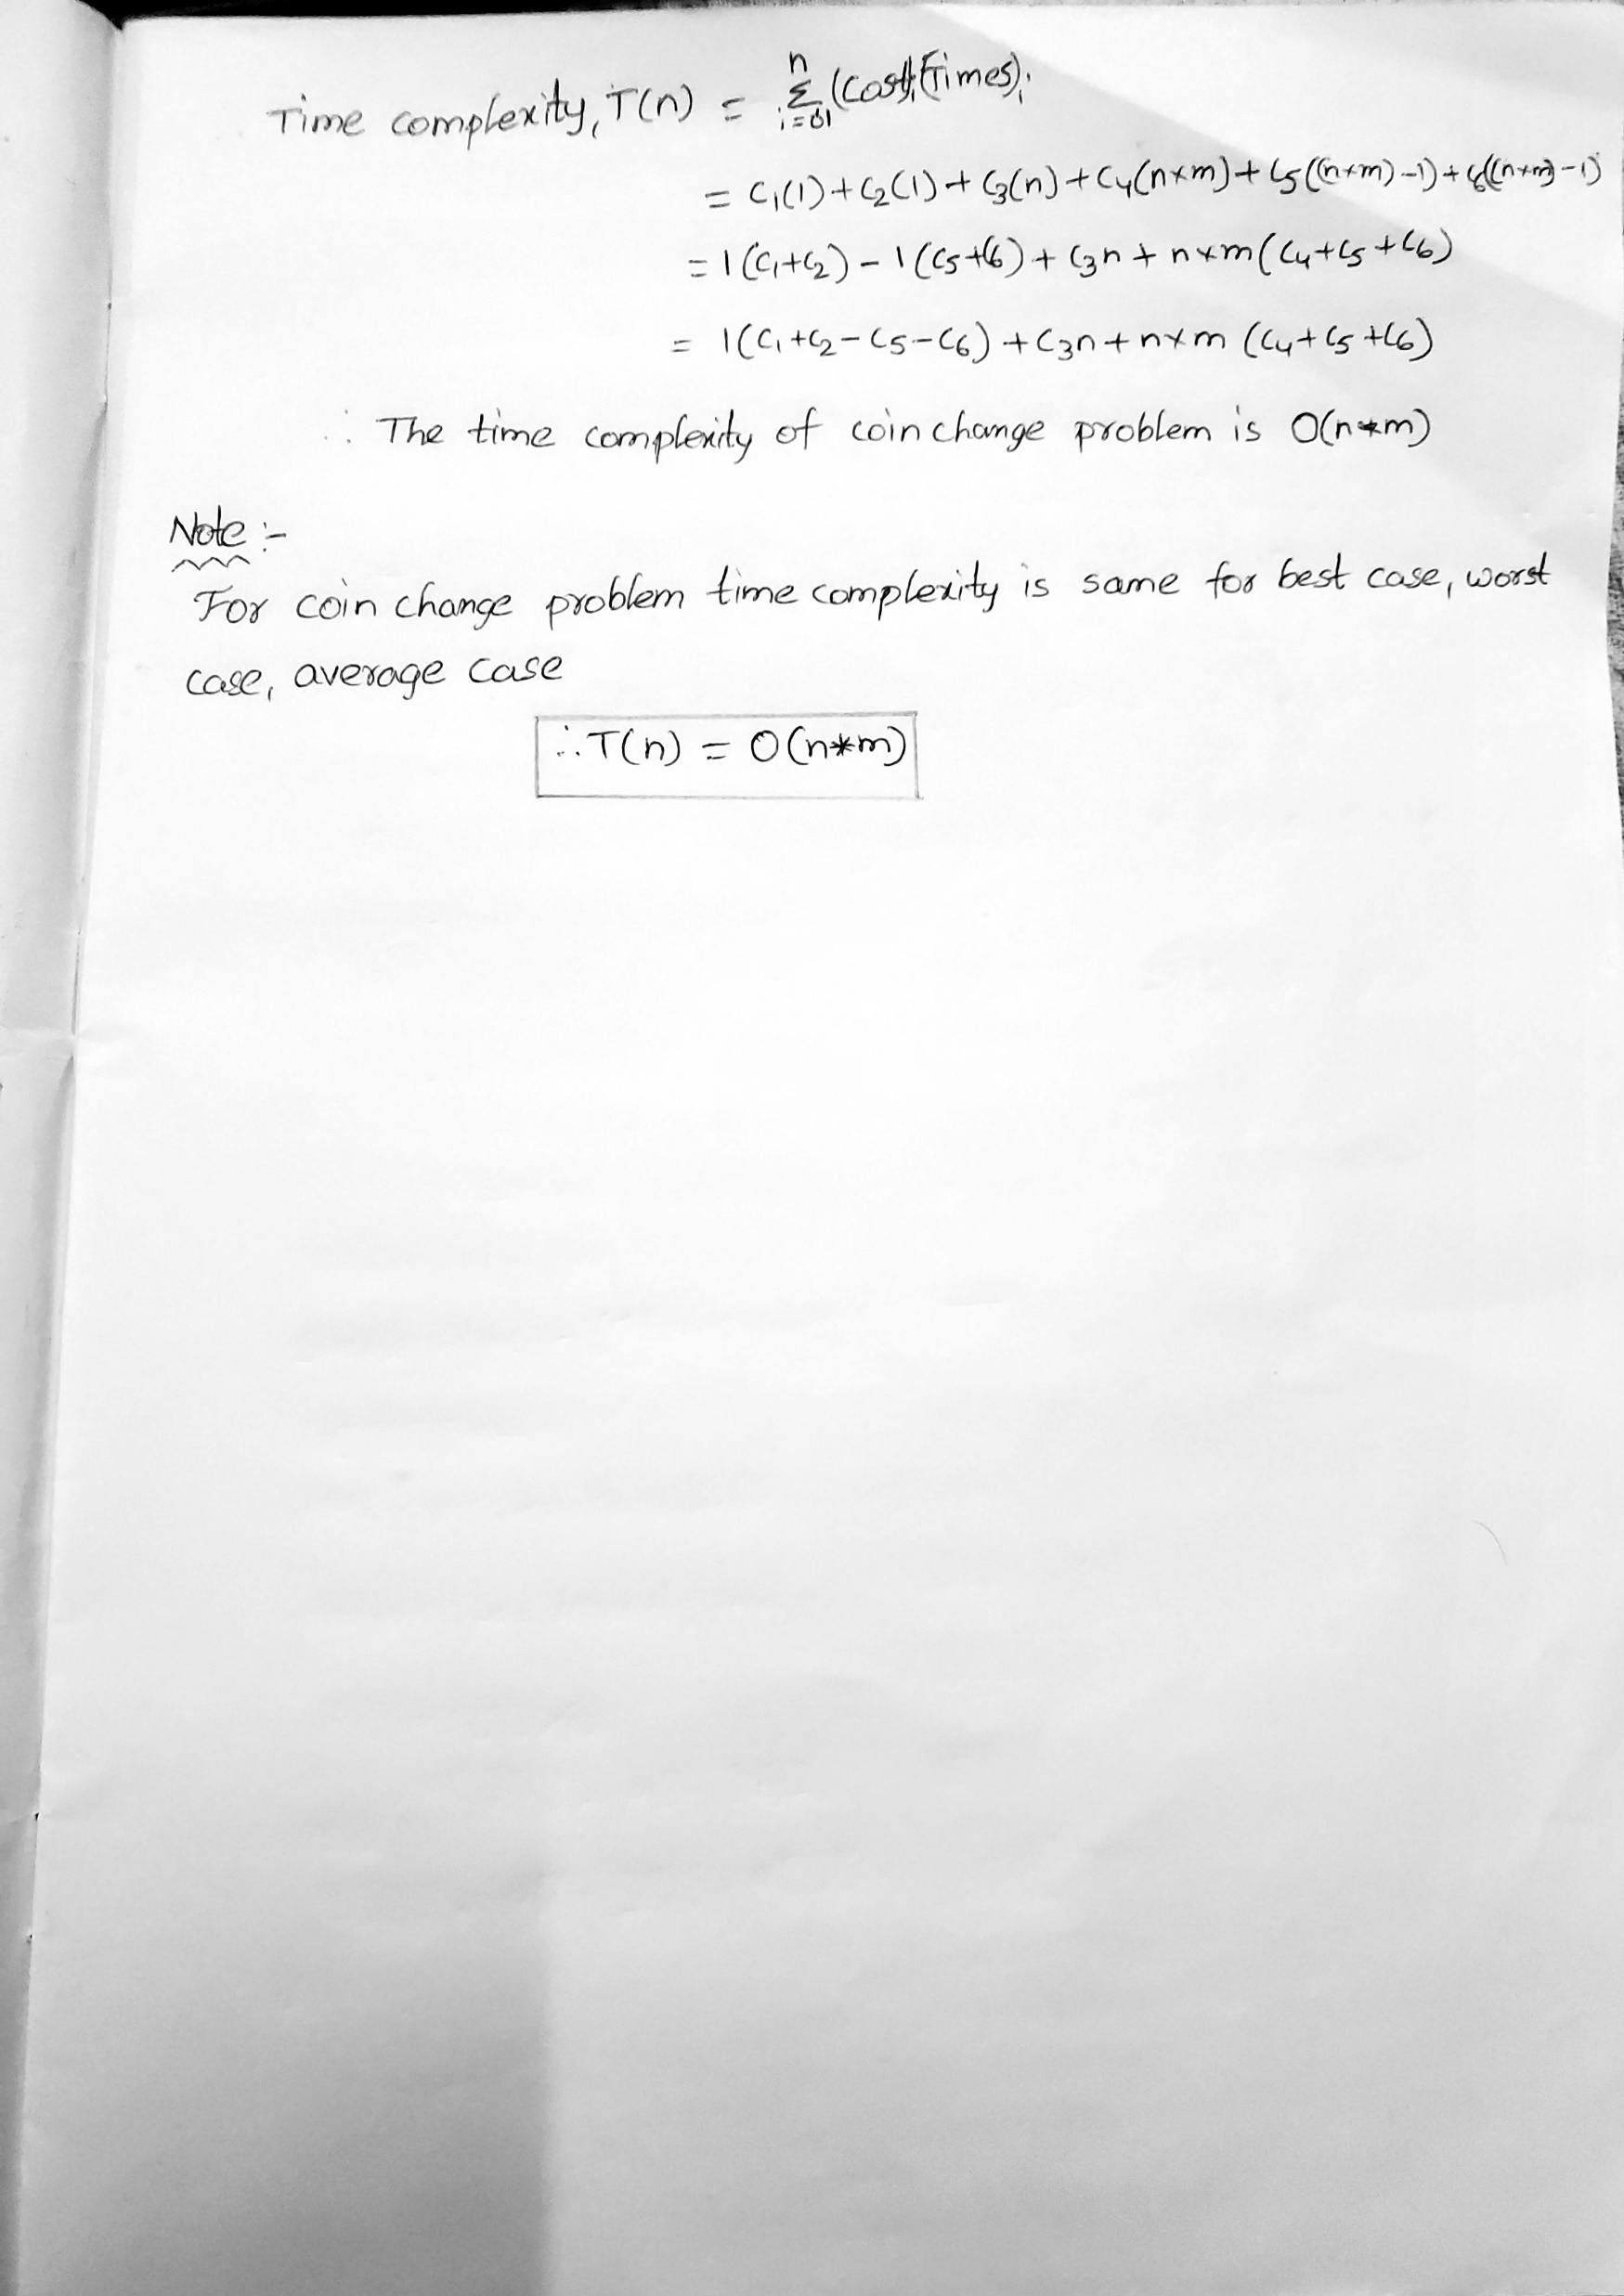 Time complexity, T(n) = n Σ i=01 (Cost)i (Times)i
= C1(1) + C2(1) + C3(n) + C4(n*m) + C5((n*m)-1) + C6((n*m)-1)
= 1(C1+C2) - 1(C5+C6) + C3n + n*m(C4+C5+C6)
= 1(C1+C2-C5-C6) + C3n + n*m (C4+C5+C6)
∴ The time complexity of coin change problem is O(n*m)
Note :-
For coin change problem time complexity is same for best case, worst
case, average case
∴ T(n) = O(n*m)